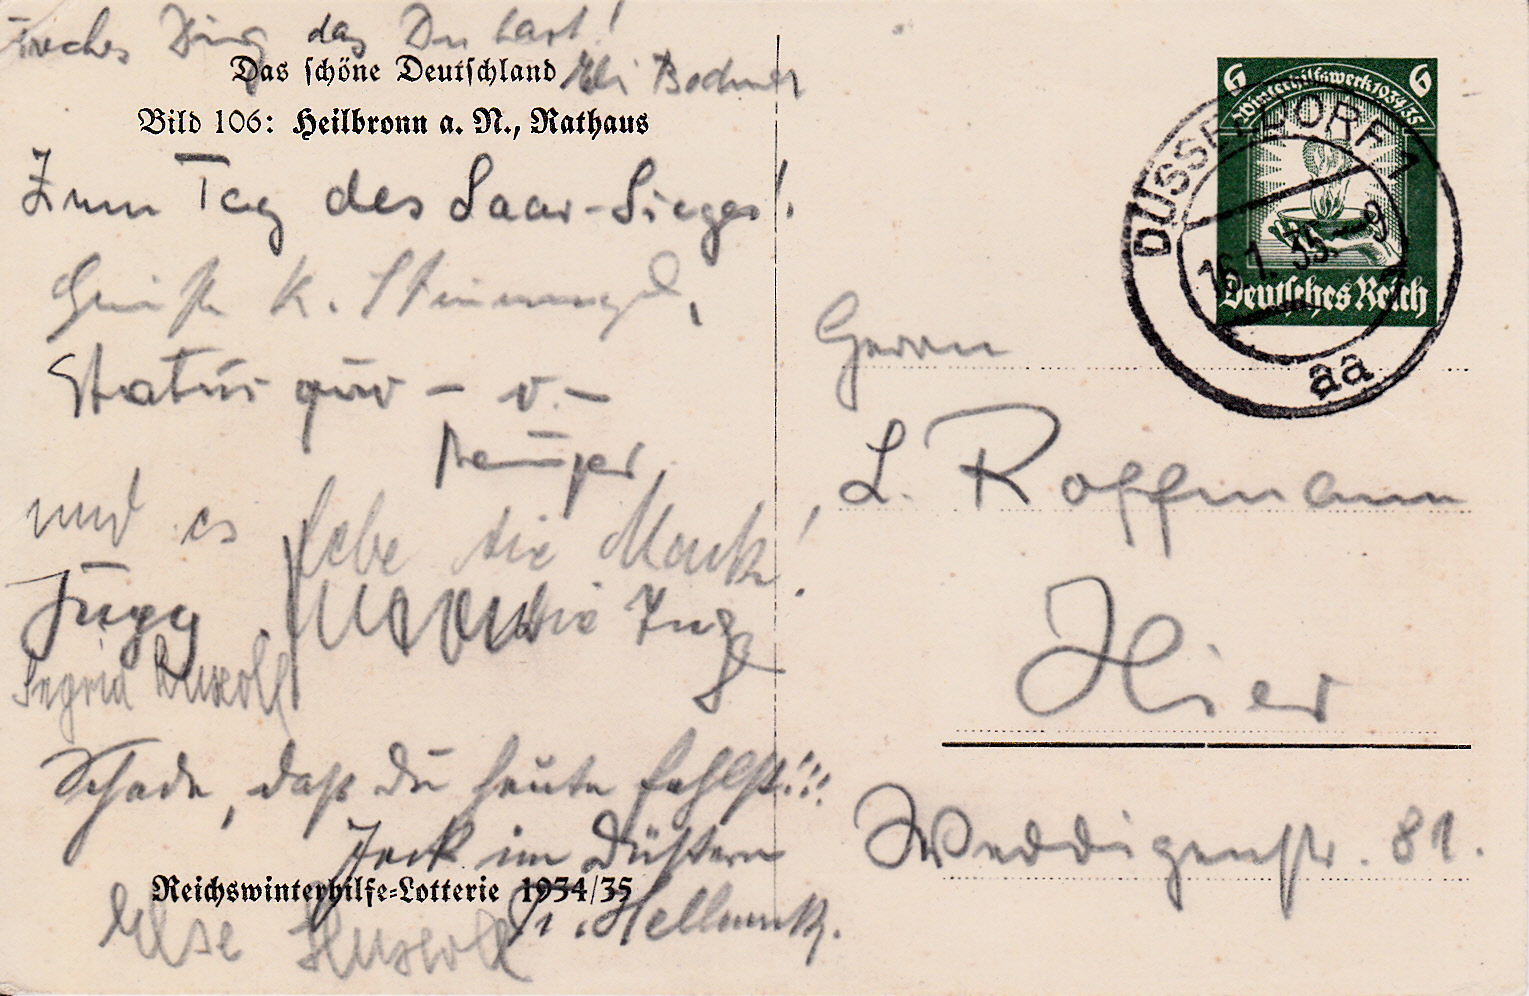 freches Ding das Du hast!
Das schöne Deutschland
Elli Bodmer
Bild 106: Heilbronn a. N., Rathaus
Zum Tag des Saar-Sieges!
K.
Status quo - v. -
und es lebe die Mark!
Jugg
die
Ingrid
Schade, daß Du heute fehlst!!!
Jeck im Düstern
Reichswinterhilfe-Lotterie 1934/35
Hellmuth.
Else
6 Winterhilfswerk 1934/35 6
Deutsches Reich
DÜSSELDORF 1
16.1.35.-9
aa
Herrn
L. Roffmann
Hier
Weddigenstr. 81.